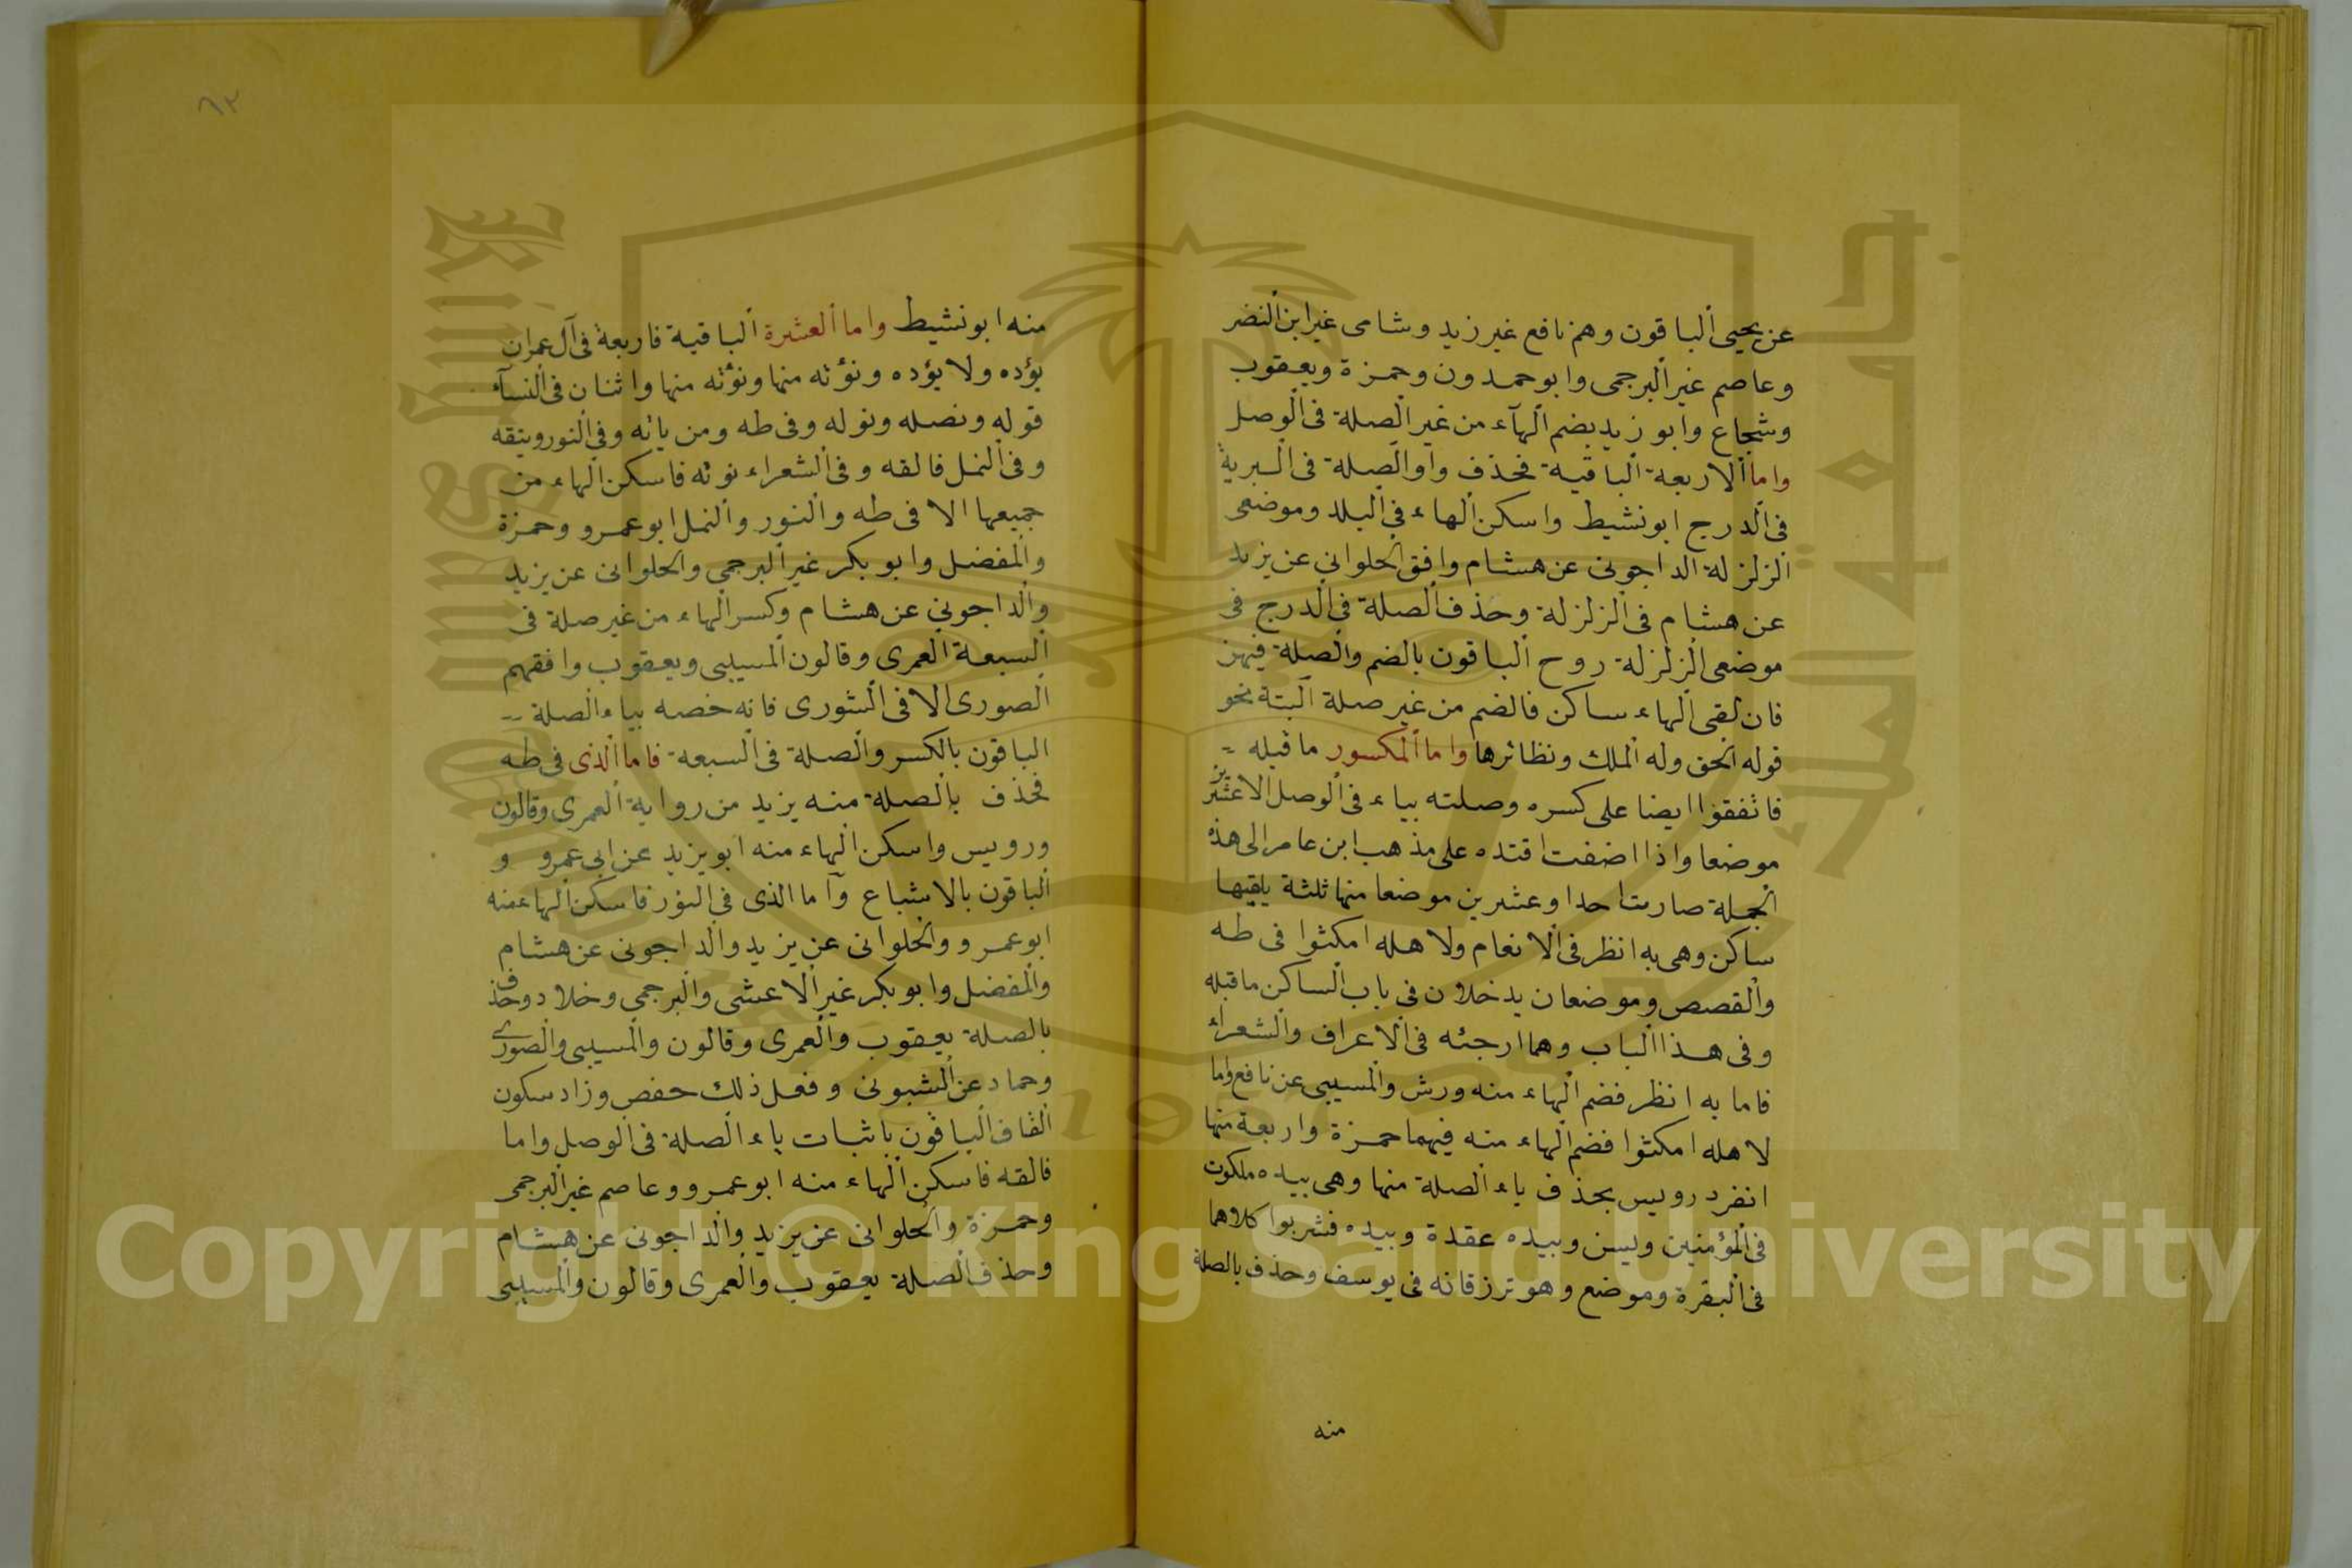 عن يحيى ألباقون وهم نافع غير زيد وشامى غير ابن ألنضر
وعاصم غير ألبرجمى وابو حمدون وحمزة ويعقوب
وشجاع وابو زيد بضم ألهآء من غير ألصلة فى ألوصل
واما ألاربعة ألباقية فحذف واو ألصلة فى ألبرية
فى ألدرج ابو نشيط واسكن ألهاء فى ألبلد وموضعى
ألزلزلة الداجونى عن هشام وافق ألحلوانى عن يزيد
عن هشام فى ألزلزلة وحذف ألصلة فى ألدرج فى
موضعى ألزلزلة روح ألباقون بالضم وألصلة فيهن
فان لقى ألهاء ساكن فالضم من غير صلة ألبتة نحو
قوله ألحق وله ألملك ونظائرها واما ألمكسور ما قبله
فاتفقوا ايضا على كسره وصلته بياء فى ألوصل الا عشرين
موضعا واذا اضفت اقتده على مذهب ابن عامر الى هذه
ألجملة صارت احدا وعشرين موضعا منها ثلثة يلقيها
ساكن وهى به انظر فى ألانعام ولاهله امكثوا فى طه
وألقصص وموضعان يدخلان فى باب ألساكن ما قبله
وفى هذا ألباب وهما ارجئه فى ألاعراف وألشعراء
فاما به انظر فضم ألهاء منه ورش وألمسيبى عن نافع واما
لاهله امكثوا فضم ألهاء منه فيهما حمزة واربعة منها
انفرد رويس بحذف ياء ألصلة منها وهى بيده ملكوت
فى ألمؤمنين ويسن وبيده عقدة وبيده فشربوا كلاهما
فى ألبقرة وموضع وهو ترزقانه فى يوسف وحذف بالصلة
منه
٦٢
منه ابو نشيط واما ألعشرة ألباقية فاربعة فى آل عمران
يؤده ولا يؤده ونؤته منها ونؤته منها واثنان فى ألنسآء
قوله ونصله ونوله وفى طه ومن ياته وفى ألنور ويتقه
وفى ألنمل فالقه وفى ألشعراء نوته فاسكن ألهاء من
جميعها الا فى طه وألنور وألنمل ابو عمرو وحمزة
وألمفضل وابو بكر غير ألبرجمى وألحلوانى عن يزيد
وألداجونى عن هشام وكسر ألهاء من غير صلة فى
ألسبعة ألعمرى وقالون ألمسيبى ويعقوب وافقهم
ألصورى الا فى ألشورى فانه خصه بياء ألصلة
الباقون بالكسر وألصلة فى ألسبعة فاما ألذى فى طه
فحذف بألصلة منه يزيد من رواية ألعمرى وقالون
ورويس واسكن ألهاء منه ابو يزيد عن ابى عمرو و
ألباقون بالاشباع وآما الذى فى النور فاسكن ألهاء منه
ابو عمرو وألحلوانى عن يزيد والداجونى عن هشام
وألمفضل وابو بكر غير ألاعشى وألبرجمى وخلاد وحذف
بالصلة يعقوب وألعمرى وقالون وألمسيبى وألصورى
وحماد عن ألشبونى وفعل ذلك حفص وزاد سكون
ألقاف ألباقون باثبات ياء ألصلة فى ألوصل واما
فالقه فاسكن ألهاء منه ابو عمرو وعاصم غير ألبرجمى
وحمزة وألحلوانى عن يزيد وألداجونى عن هشام
وحذف ألصلة يعقوب وألعمرى وقالون وألمسيبى
Copyright © King Saud University